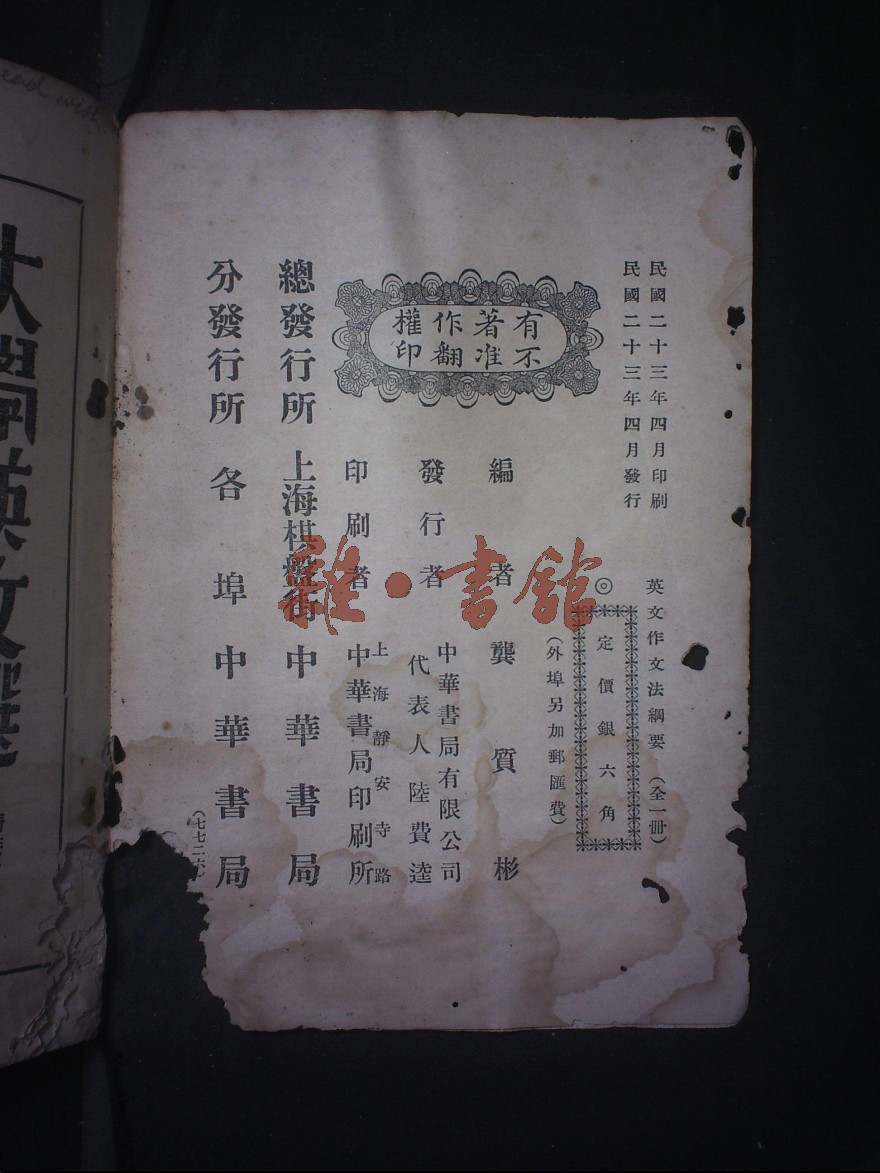 民國二十三年四月印刷
民國二十三年四月發行
英文作文法綱要（全一冊）
◎定價銀六角
（外埠另加郵匯費）
有著作權
不准翻印
編者 龔質彬
發行者 中華書局有限公司
代表人陸費逵
印刷者 上海靜安寺路
中華書局印刷所
總發行所 上海棋盤街 中華書局
分發行所 各埠 中華書局
（七七二六）
雜·書館
ead with
大學英文選